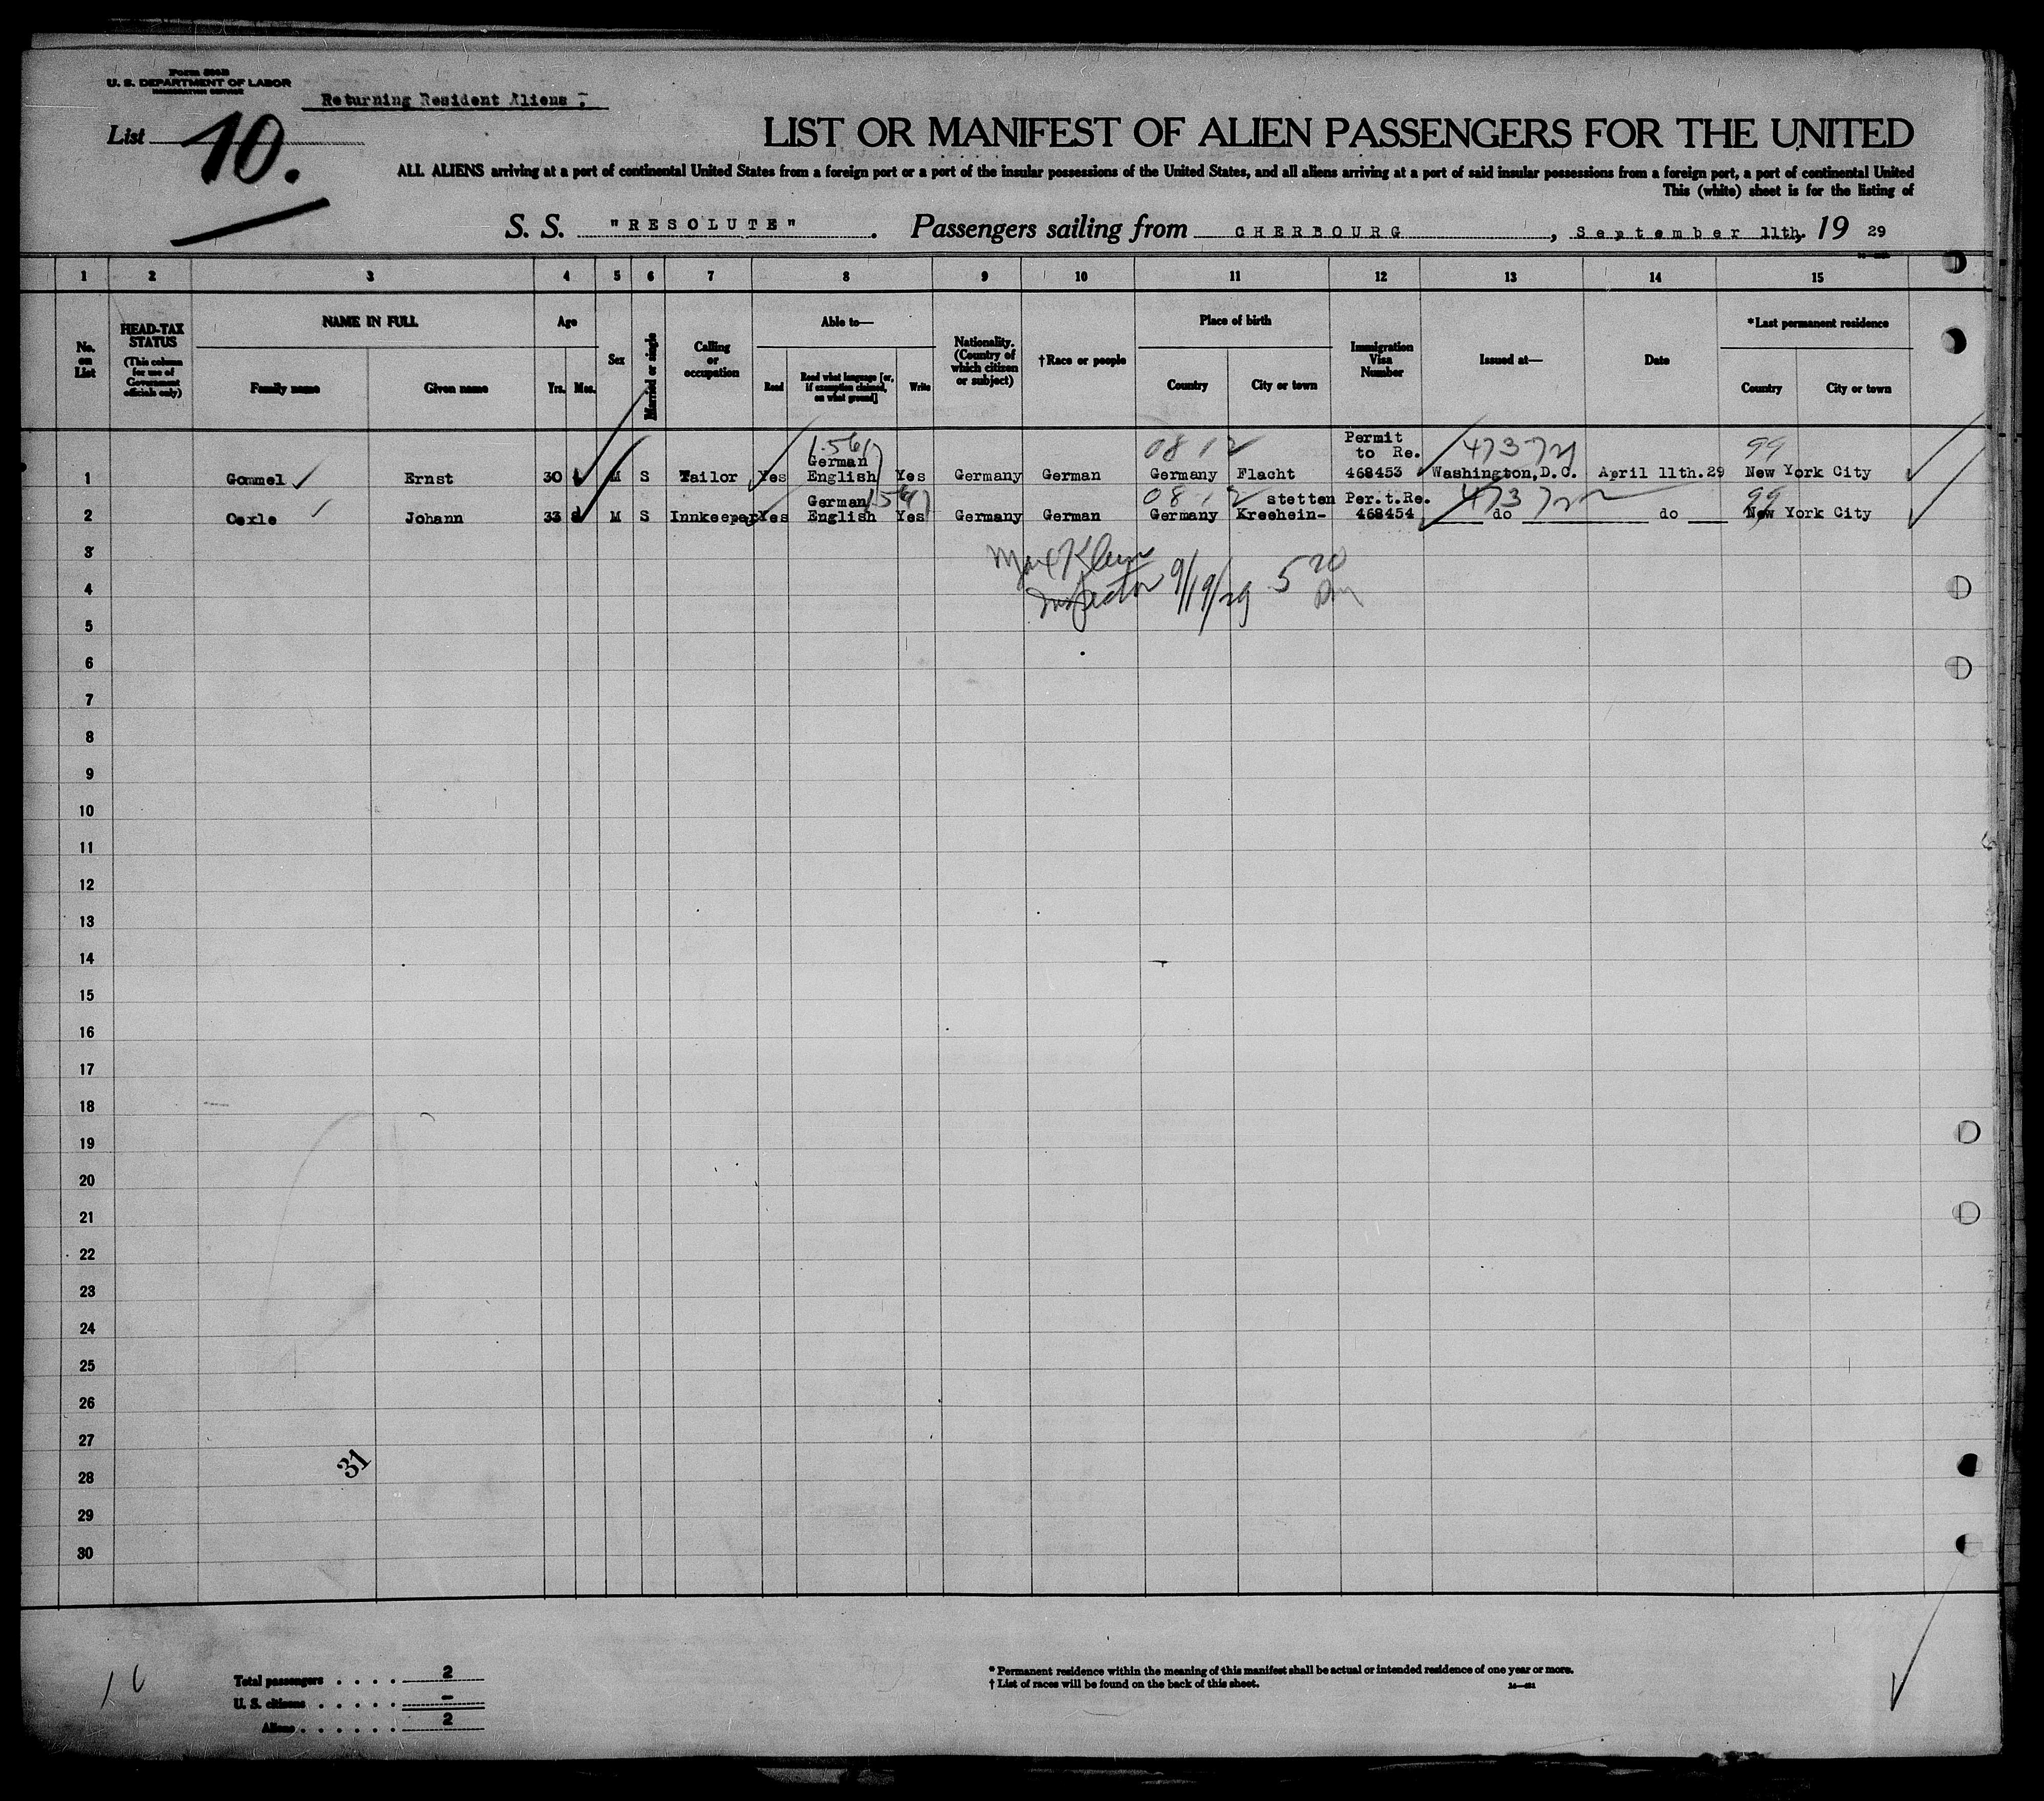 Form 500B
U. S. DEPARTMENT OF LABOR
IMMIGRATION SERVICE
Returning Resident Aliens ;
List 10.
LIST OR MANIFEST OF ALIEN PASSENGERS FOR THE UNITED
ALL ALIENS arriving at a port of continental United States from a foreign port or a port of the insular possessions of the United States, and all aliens arriving at a port of said insular possessions from a foreign port, a port of continental United
This (white) sheet is for the listing of
S. S. "RESOLUTE" . Passengers sailing from CHERBOURG , September 11th. 19 29
1 2 3 4 5 6 7 8 9 10 11 12 13 14 15
No. on List
HEAD-TAX STATUS (This column for use of Government officials only)
NAME IN FULL
Family name Given name
Age
Yrs. Mos.
Sex
Married or single
Calling or occupation
Able to—
Read Read what language [or, if exemption claimed, on what ground] Write
Nationality. (Country of which citizen or subject)
†Race or people
Place of birth
Country City or town
Immigration Visa Number
Issued at—
Date
*Last permanent residence
Country City or town
1 Gommel Ernst 30 M S Tailor Yes German English Yes Germany German Germany Flacht Permit to Re. 468453 Washington,D.C. April 11th.29 New York City
2 Oexle Johann 33 M S Innkeeper Yes German English Yes Germany German Germany Kreehein- stetten Per.t.Re. 468454 do do New York City
99
99
3
Max Klein
Inspector 9/19/29 5 20 pm
4
5
6
7
8
9
10
11
12
13
14
15
16
17
18
19
20
21
22
23
24
25
26
27
31
28
29
30
Total passengers . . . . 2
U. S. citizens . . . . . –
Aliens . . . . . . 2
* Permanent residence within the meaning of this manifest shall be actual or intended residence of one year or more.
† List of races will be found on the back of this sheet.